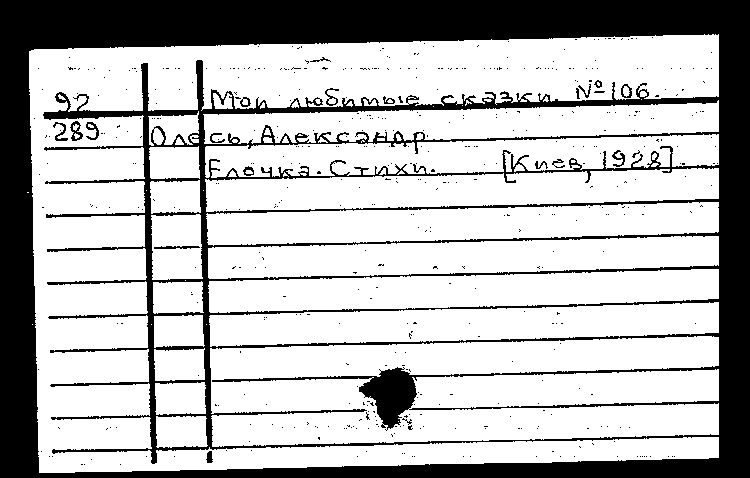 92 Мои любимые сказки. №106.
289 Олесь, Александр
Елочка. Стихи. [Киев, 1928].